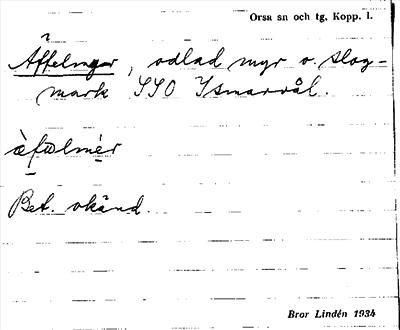 Orsa sn och tg, Kopp. l.
Äffelmyar, odlad myr o. slog-
mark SSO Ysmarvål.
àfωlmèr
Bet. okänd.
Bror Lindén 1934